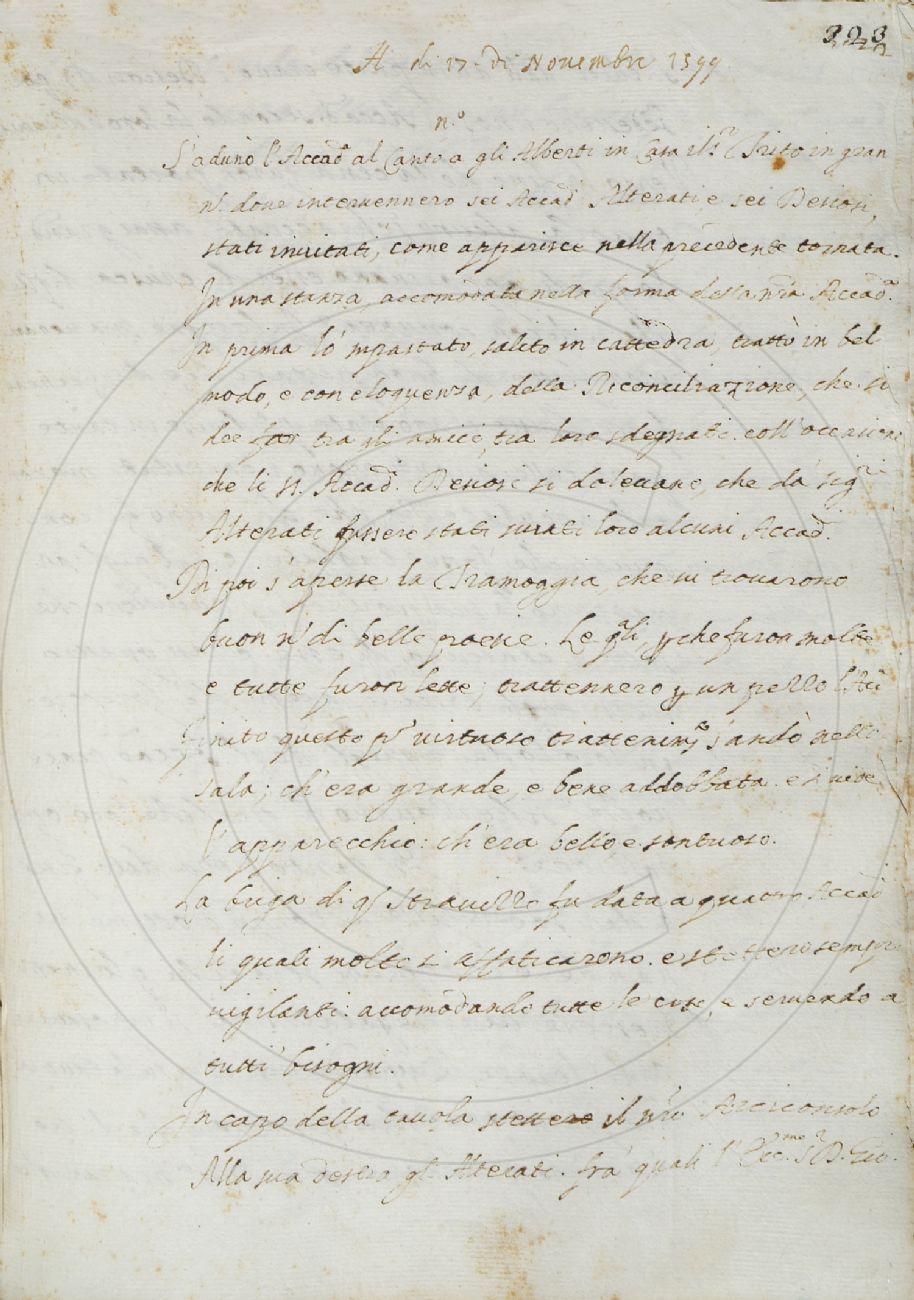 323
A di 17. di Nouembre 1599
n.º
S'adunò l'Accad. al Canto a gli Alberti in Casa il S.r Trito in gran
n.º doue interuennero sei Accad. Alterati e sei Desiosi,
stati inuitati, come apparisce nella precedente tornata.
In una stanza, accomodata nella forma della n'ra Accad.a
In prima lo 'mpastato, salito in cattedra, trattò in bel
modo, e con eloquenza, della Riconciliazione, che si
dee far tra gli amici, tra loro sdegnati. coll'occasione
che li SS. Accad. Desiosi si doleuano, che da' sig.ri
Alterati fussero stati suiati loro alcuni Accad.
Di poi s'aperse la Tramoggia, che ui trouarono
buon n.º di belle poesie. Le q.li, p che furon molte
e tutte furon lette; trattennero p un pezzo l'Acc.
Finito questo p.º virtuoso trattenim.to s'andò nella
sala; ch'era grande, e bene addobbata. e si uide
l'apparecchio: ch'era bello e sontuoso.
La briga di q.º Strauizzo fu data a quattro Accad.
li quali molto si affaticarono. e stettero sempre
uigilanti: accomodando tutte le cose, e seruendo a
tutti i bisogni.
In capo della tauola stettero il n'ro Arciconsolo
Alla sua destra gl'Alterati. fra' quali l'Ecc.mo S.r D. Gio.